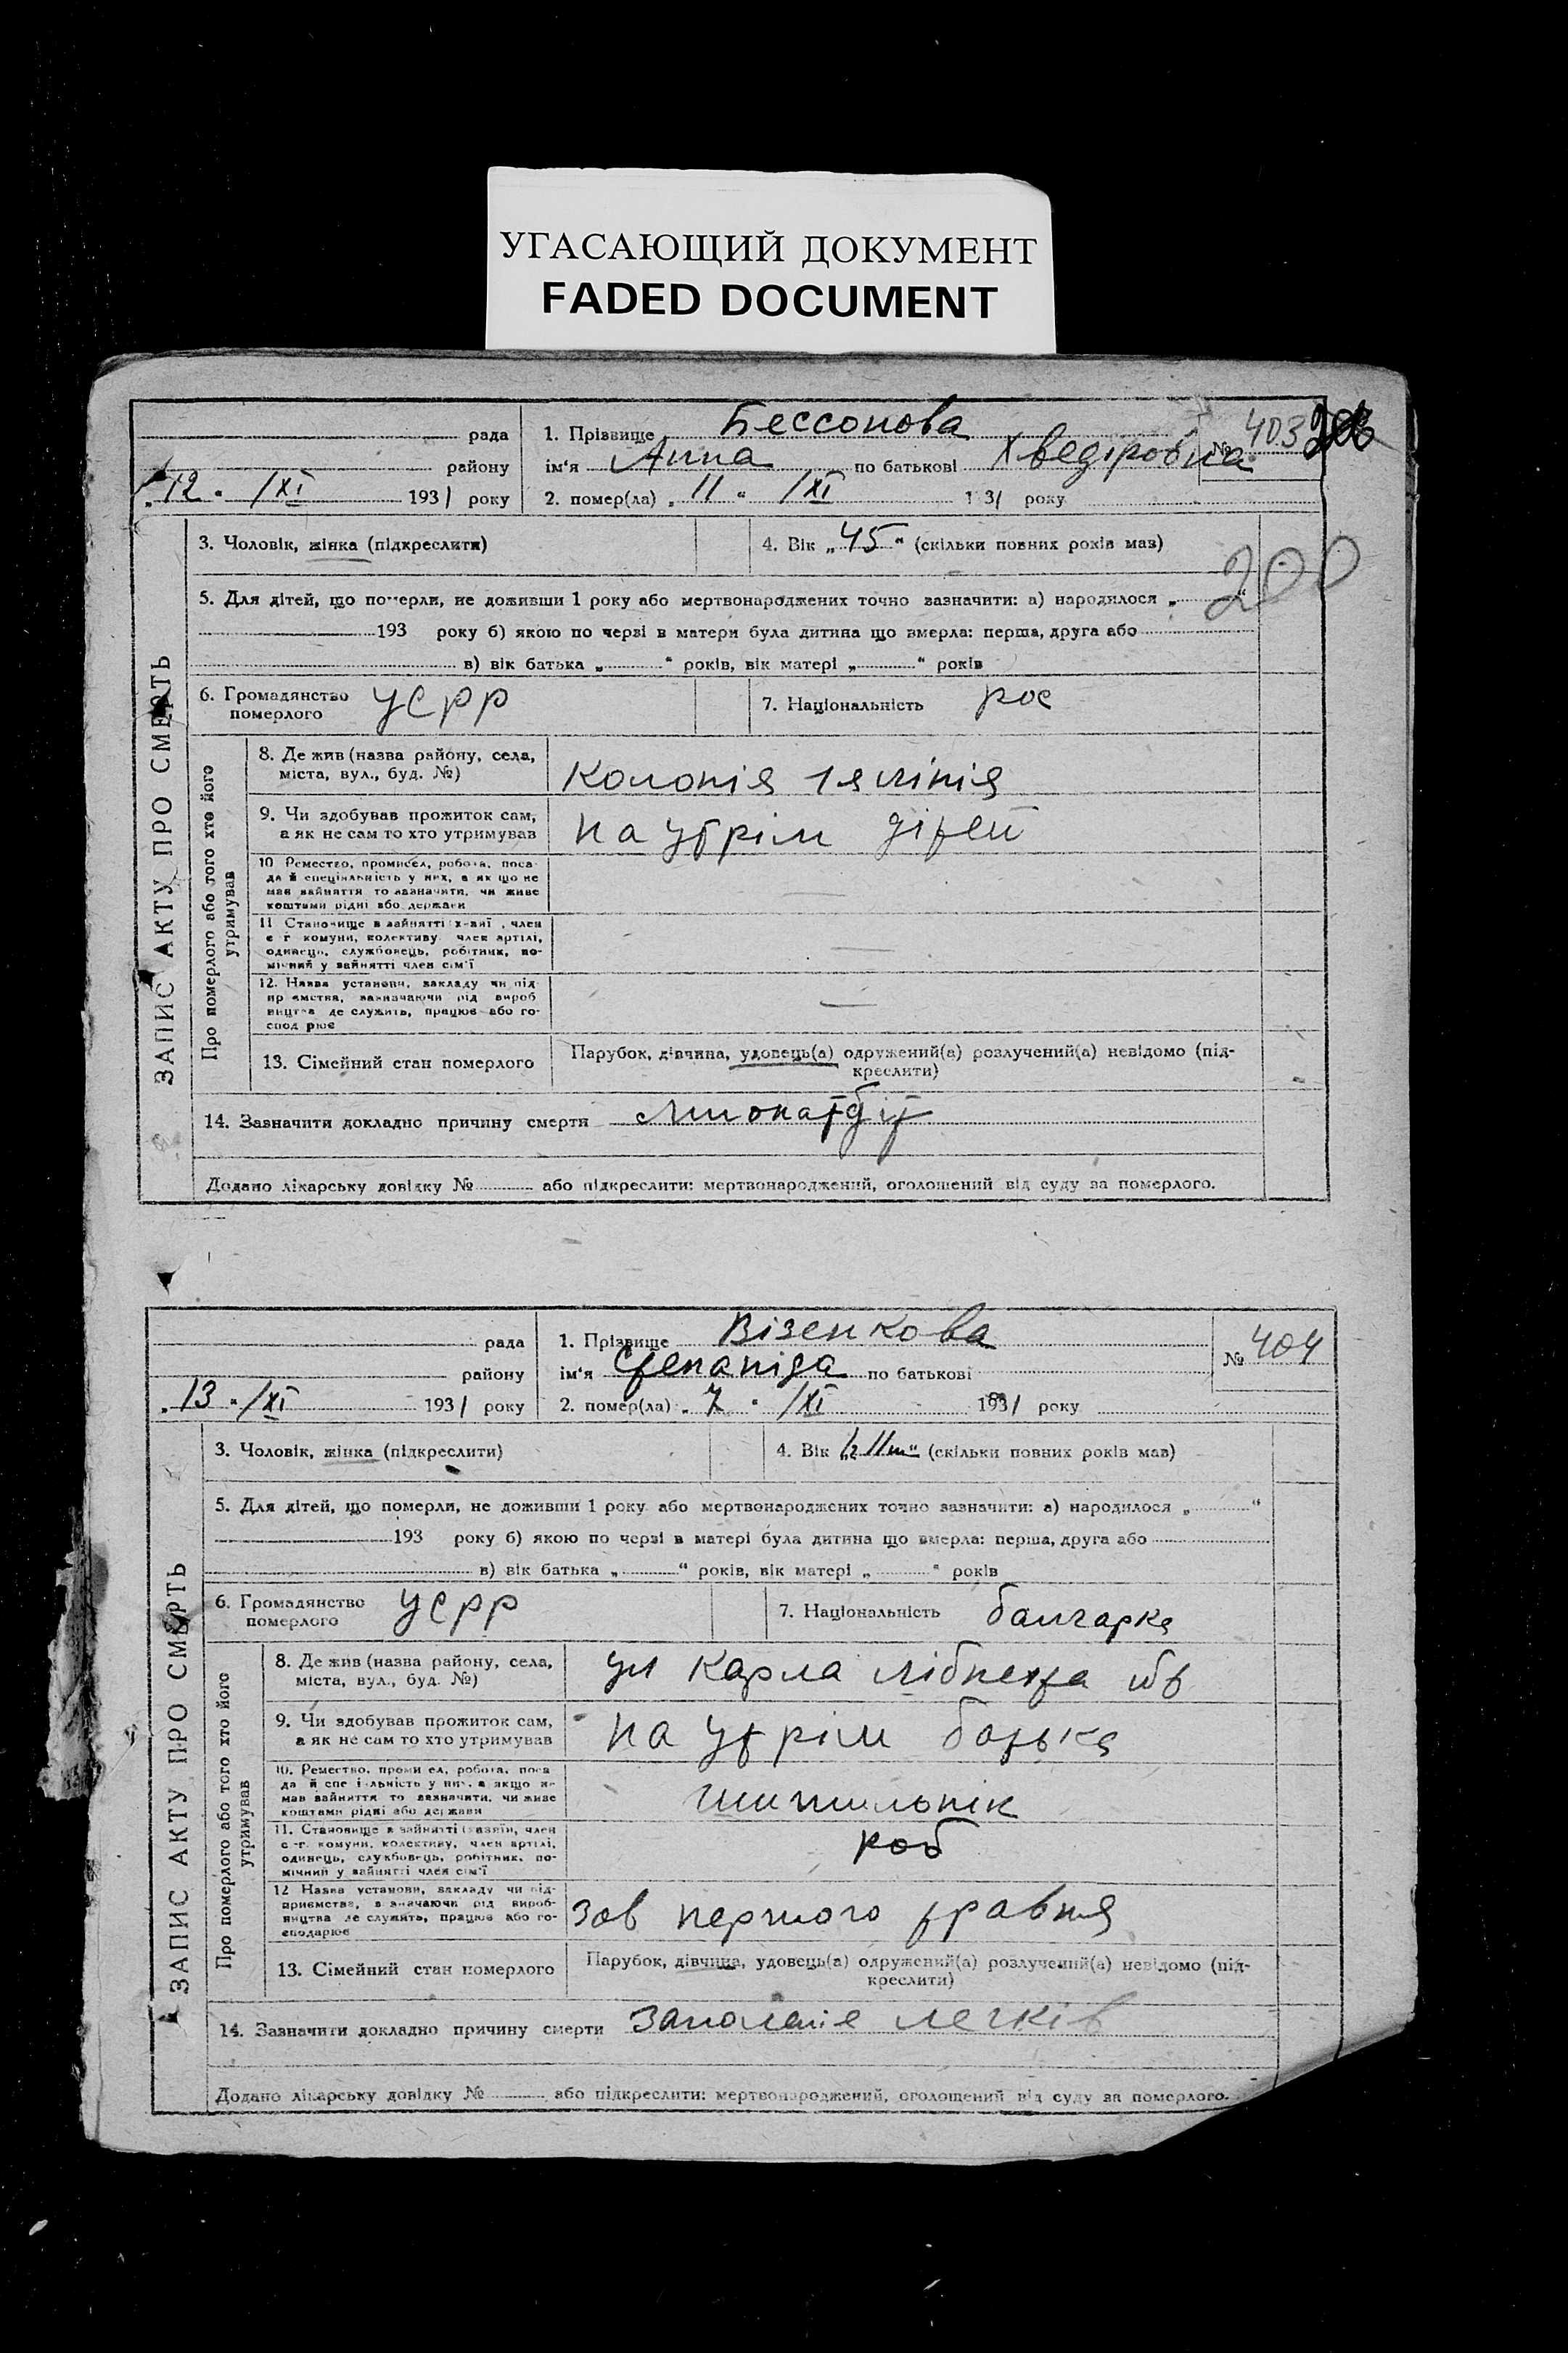 УГАСАЮЩИЙ ДОКУМЕНТ
FADED DOCUMENT
рада
1. Прізвище Бессонова
№ 403
району
ім'я Анна по батькові Хведіровна
„12" /XI 1931 року
2. помер(ла) „11" /XI 1931 року
ЗАПИС АКТУ ПРО СМЕРТЬ
3. Чоловік, жінка (підкреслити)
4. Вік „45" (скільки повних років мав)
200
5. Для дітей, що померли, не доживши 1 року або мертвонароджених точно зазначити: а) народилося „
193 року б) якою по черзі в матери була дитина що вмерла: перша, друга або
в) вік батька „ " років, вік матері „ " років
6. Громадянство померлого УСРР
7. Національність рос
Про померлого або того хто його утримував
8. Де жив (назва району, села, міста, вул., буд. №) Колонія 1я лінія
9. Чи здобував прожиток сам, а як не сам то хто утримував на утрім дітей
10 Ремество, промисел, робота, посада й спеціяльність у них, а як що не мав зайняття то зазначити, чи живе коштами рідні або держави —
11 Становище в зайнятті член с г комуни, колективу член артілі, одинець, службовець, робітник, помічний у зайнятті член сім'ї —
12. Назва установи, закладу чи підприємства, зазначаючи рід виробництва де служить, працює або господарює —
13. Сімейний стан померлого
Парубок, дівчина, удовець(а) одружений(а) розлучений(а) невідомо (підкреслити)
14. Зазначити докладно причину смерти
Додано лікарську довідку № або підкреслити: мертвонароджений, оголошений від суду за померлого.
рада
1. Прізвище Візенкова
№ 404
району
ім'я Степаніда по батькові
„13" /XI 1931 року
2. помер(ла) „7" /XI 1931 року
ЗАПИС АКТУ ПРО СМЕРТЬ
3. Чоловік, жінка (підкреслити)
4. Вік (скільки повних років мав)
5. Для дітей, що померли, не доживши 1 року або мертвонароджених точно зазначити: а) народилося „ "
193 року б) якою по черзі в матері була дитина що вмерла: перша, друга або
в) вік батька „ " років, вік матері „ " років
6. Громадянство померлого УСРР
7. Національність болгарка
Про померлого або того хто його утримував
8. Де жив (назва району, села, міста, вул., буд. №) ул Карла Лібнехта
9. Чи здобував прожиток сам, а як не сам то хто утримував на утрім батька
10. Ремество, промисел, робота, посада й спеціяльність у них, а якщо не мав зайняття то зазначити, чи живе коштами рідні або держави
11. Становище в зайнятті (хазяїн, член с.-г. комуни, колективу, член артілі, одинець, службовець, робітник, помічний у зайнятті член сім'ї роб
12 Назва установи, закладу чи підприємства, зазначаючи рід виробництва де служить, працює або господарює зав першого травня
13. Сімейний стан померлого
Парубок, дівчина, удовець(а) одружений(а) розлучений(а) невідомо (підкреслити)
14. Зазначити докладно причину смерти запаление легків
Додано лікарську довідку № або підкреслити: мертвонароджений, оголошений від суду за померлого.